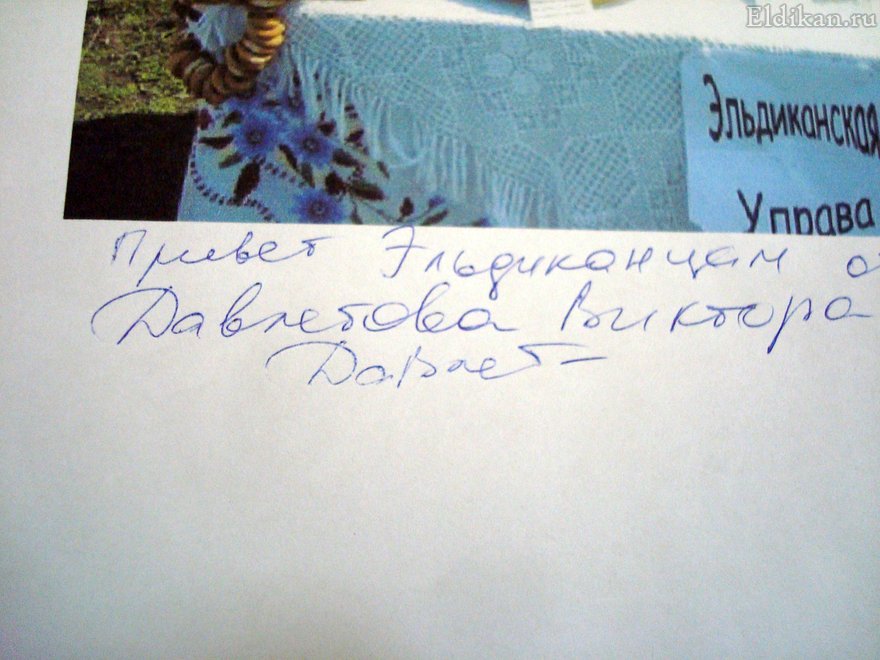 Eldikan.ru
Эльдиканская
Управа
Привет Эльдиканцам о
Давлетова Виктора
Давлет